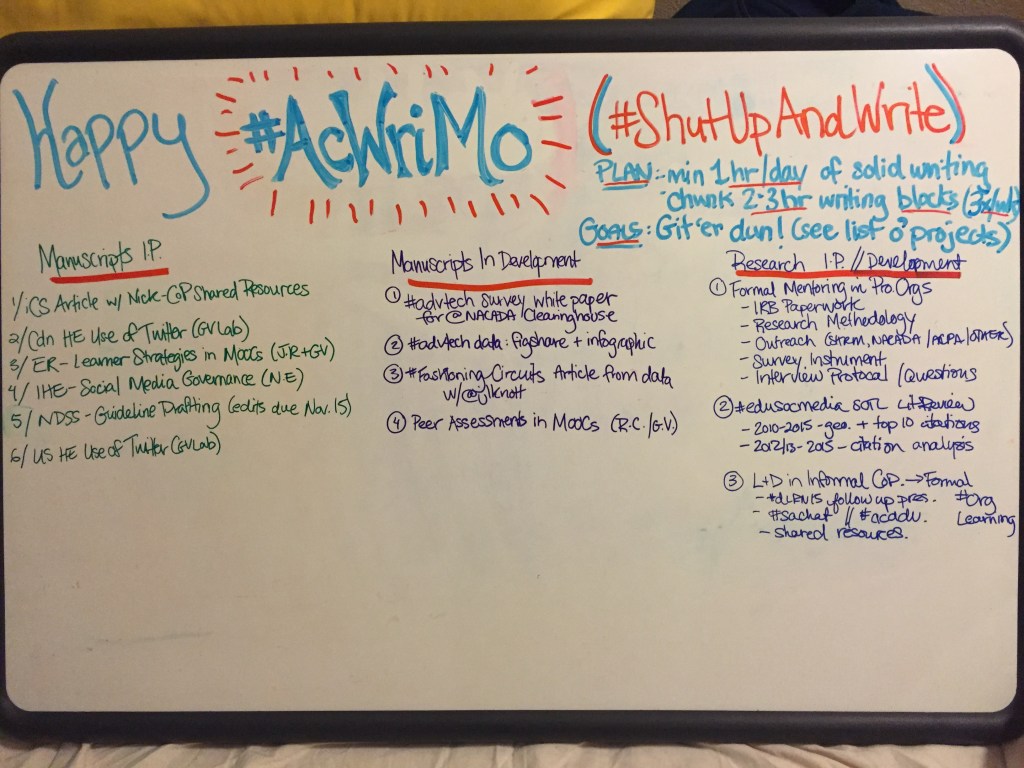 Happy #AcWriMo (#ShutUpAndWrite)
PLAN: - min 1hr/day of solid writing
chunk 2-3hr writing blocks (3x/wk)
GOALS: Git 'er dun! (see list o' projects)
Manuscripts I.P.
1/ iCS Article w/ Nick-CoP Shared Resources
2/ Cdn HE Use of Twitter (GVLab)
3/ ER- Learner Strategies in MOOCs (JR+GV)
4/ IHE- Social Media Governance (NE)
5/ NDSS - Guideline Drafting (edits due Nov. 15)
6/ US HE Use of Twitter (GVLab)
Manuscripts In Development
① #advtech survey white paper
for @NACADA Clearinghouse
② #advtech data: figshare + infographic
③ #FashioningCircuits Article from data
w/@jlknott
④ Peer Assessments in MOOCs (R.C./G.V.)
Research I.P. // Development
① Formal Mentoring in Pro. Orgs
- IRB Paperwork
- Research Methodology
- Outreach (SHRM, NACADA/ACPA/OTHER)
- Survey Instrument
- Interview Protocol/Questions
② #edusocmedia SOTL Lit Review
- 2010-2015-geo. + top 10 citations
- 2012/13-2015 - citation analysis
③ L+D in Informal CoP. → Formal
- #dLRN15 follow up pres. #Org
- #sachat // #acadv. Learning
- shared resources.